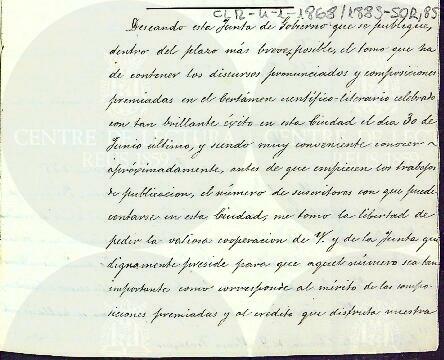 CLR-U-1-1868/1889-SOR, 85
Deseando esta Junta de Gobierno que se publique,
dentro del plazo más breve posible, el tomo que ha
de contener los discursos pronunciados y composiciones
premiadas en el Certámen científico-literario celebrado
con tan brillante éxito en esta Ciudad el dia 30 de
Junio último, y siendo muy conveniente conocer
apróximadamente, antes de que empiecen los trabajos
de publicacion, el número de suscritores con que puede
contarse en esta Ciudad, me tomo la libertad de
pedir la valiosa cooperacion de V. y de la Junta que
dignamente preside para que aquel número sea tan
importante como corresponde al mérito de las compo
siciones premiadas y al crédito que disfruta nuestra
CENTRE DE LECTURA
REUS 1859